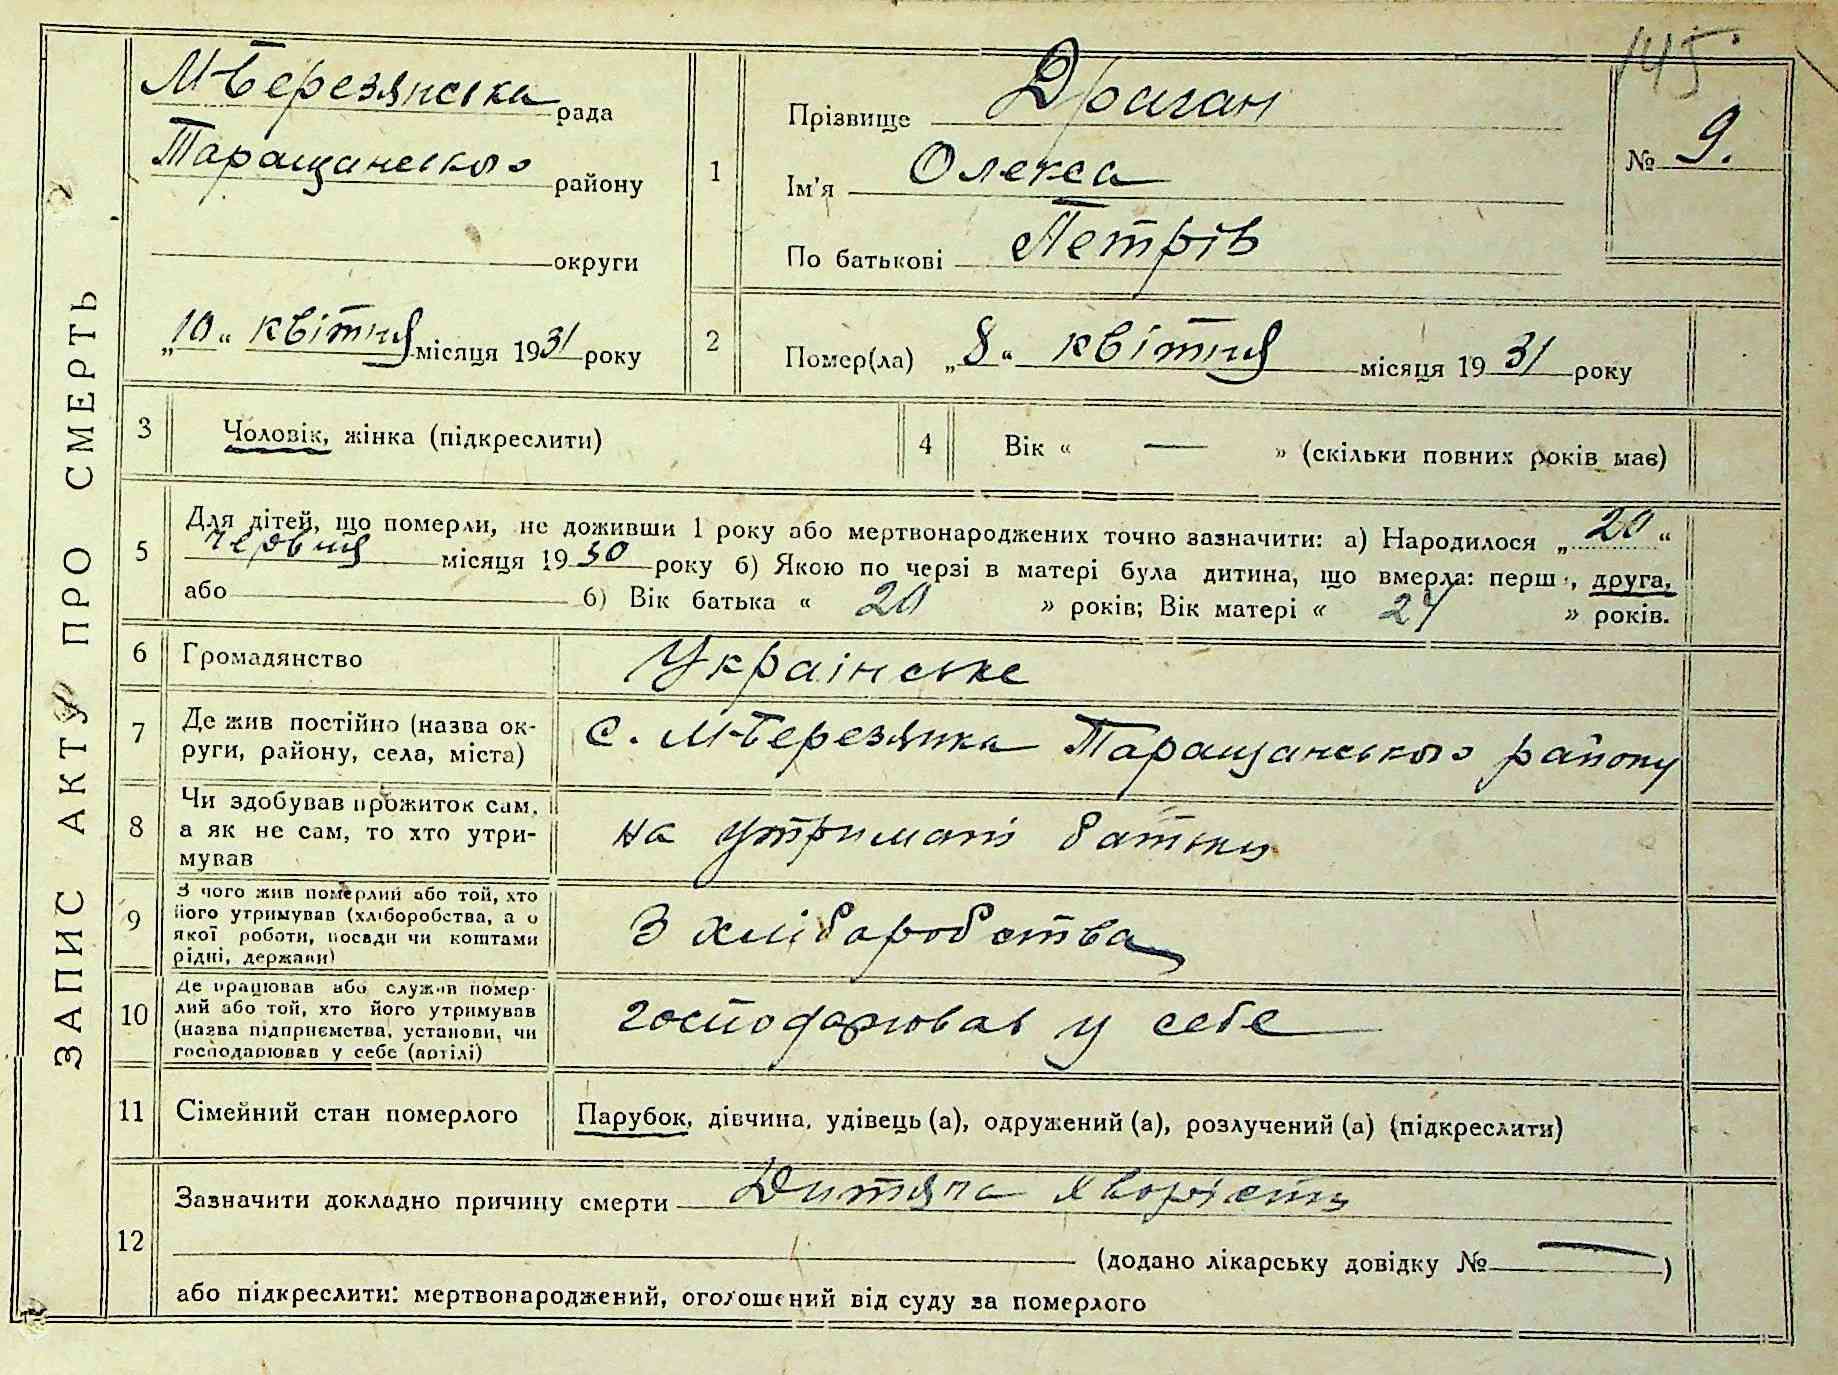 145
ЗАПИС АКТУ ПРО СМЕРТЬ
М-Березянська рада
Таращанського району
округи
„10“ квітня місяця 1931 року
1
Прізвище Драган
Ім'я Олекса
По батькові Петрів
№ 9.
2
Помер(ла) „8“ квітня місяця 1931 року
3
Чоловік, жінка (підкреслити)
4
Вік « — » (скільки повних років має)
5
Для дітей, що померли, не доживши 1 року або мертвонароджених точно зазначити: а) Народилося „20“
червня місяця 1930 року б) Якою по черзі в матері була дитина, що вмерла: перш , друга,
або б) Вік батька « 20 » років; Вік матері « » років.
6
Громадянство
Українське
7
Де жив постійно (назва ок-
руги, району, села, міста)
С. М-Березянка Таращанського району
8
Чи здобував прожиток сам,
а як не сам, то хто утри-
мував
на утримані батьки
9
З чого жив померлий або той, хто
його утримував (хліборобства, а о
якої роботи, посади чи коштами
рідні, держави)
З хліборобства
10
Де працював або служив помер-
лий або той, хто його утримував
(назва підприємства, установи, чи
господарював у себе (артілі)
господарював у себе
11
Сімейний стан померлого
Парубок, дівчина, удівець (а), одружений (а), розлучений (а) (підкреслити)
12
Зазначити докладно причину смерти Дитяча хворість
(додано лікарську довідку № — )
або підкреслити: мертвонароджений, оголошений від суду за померлого